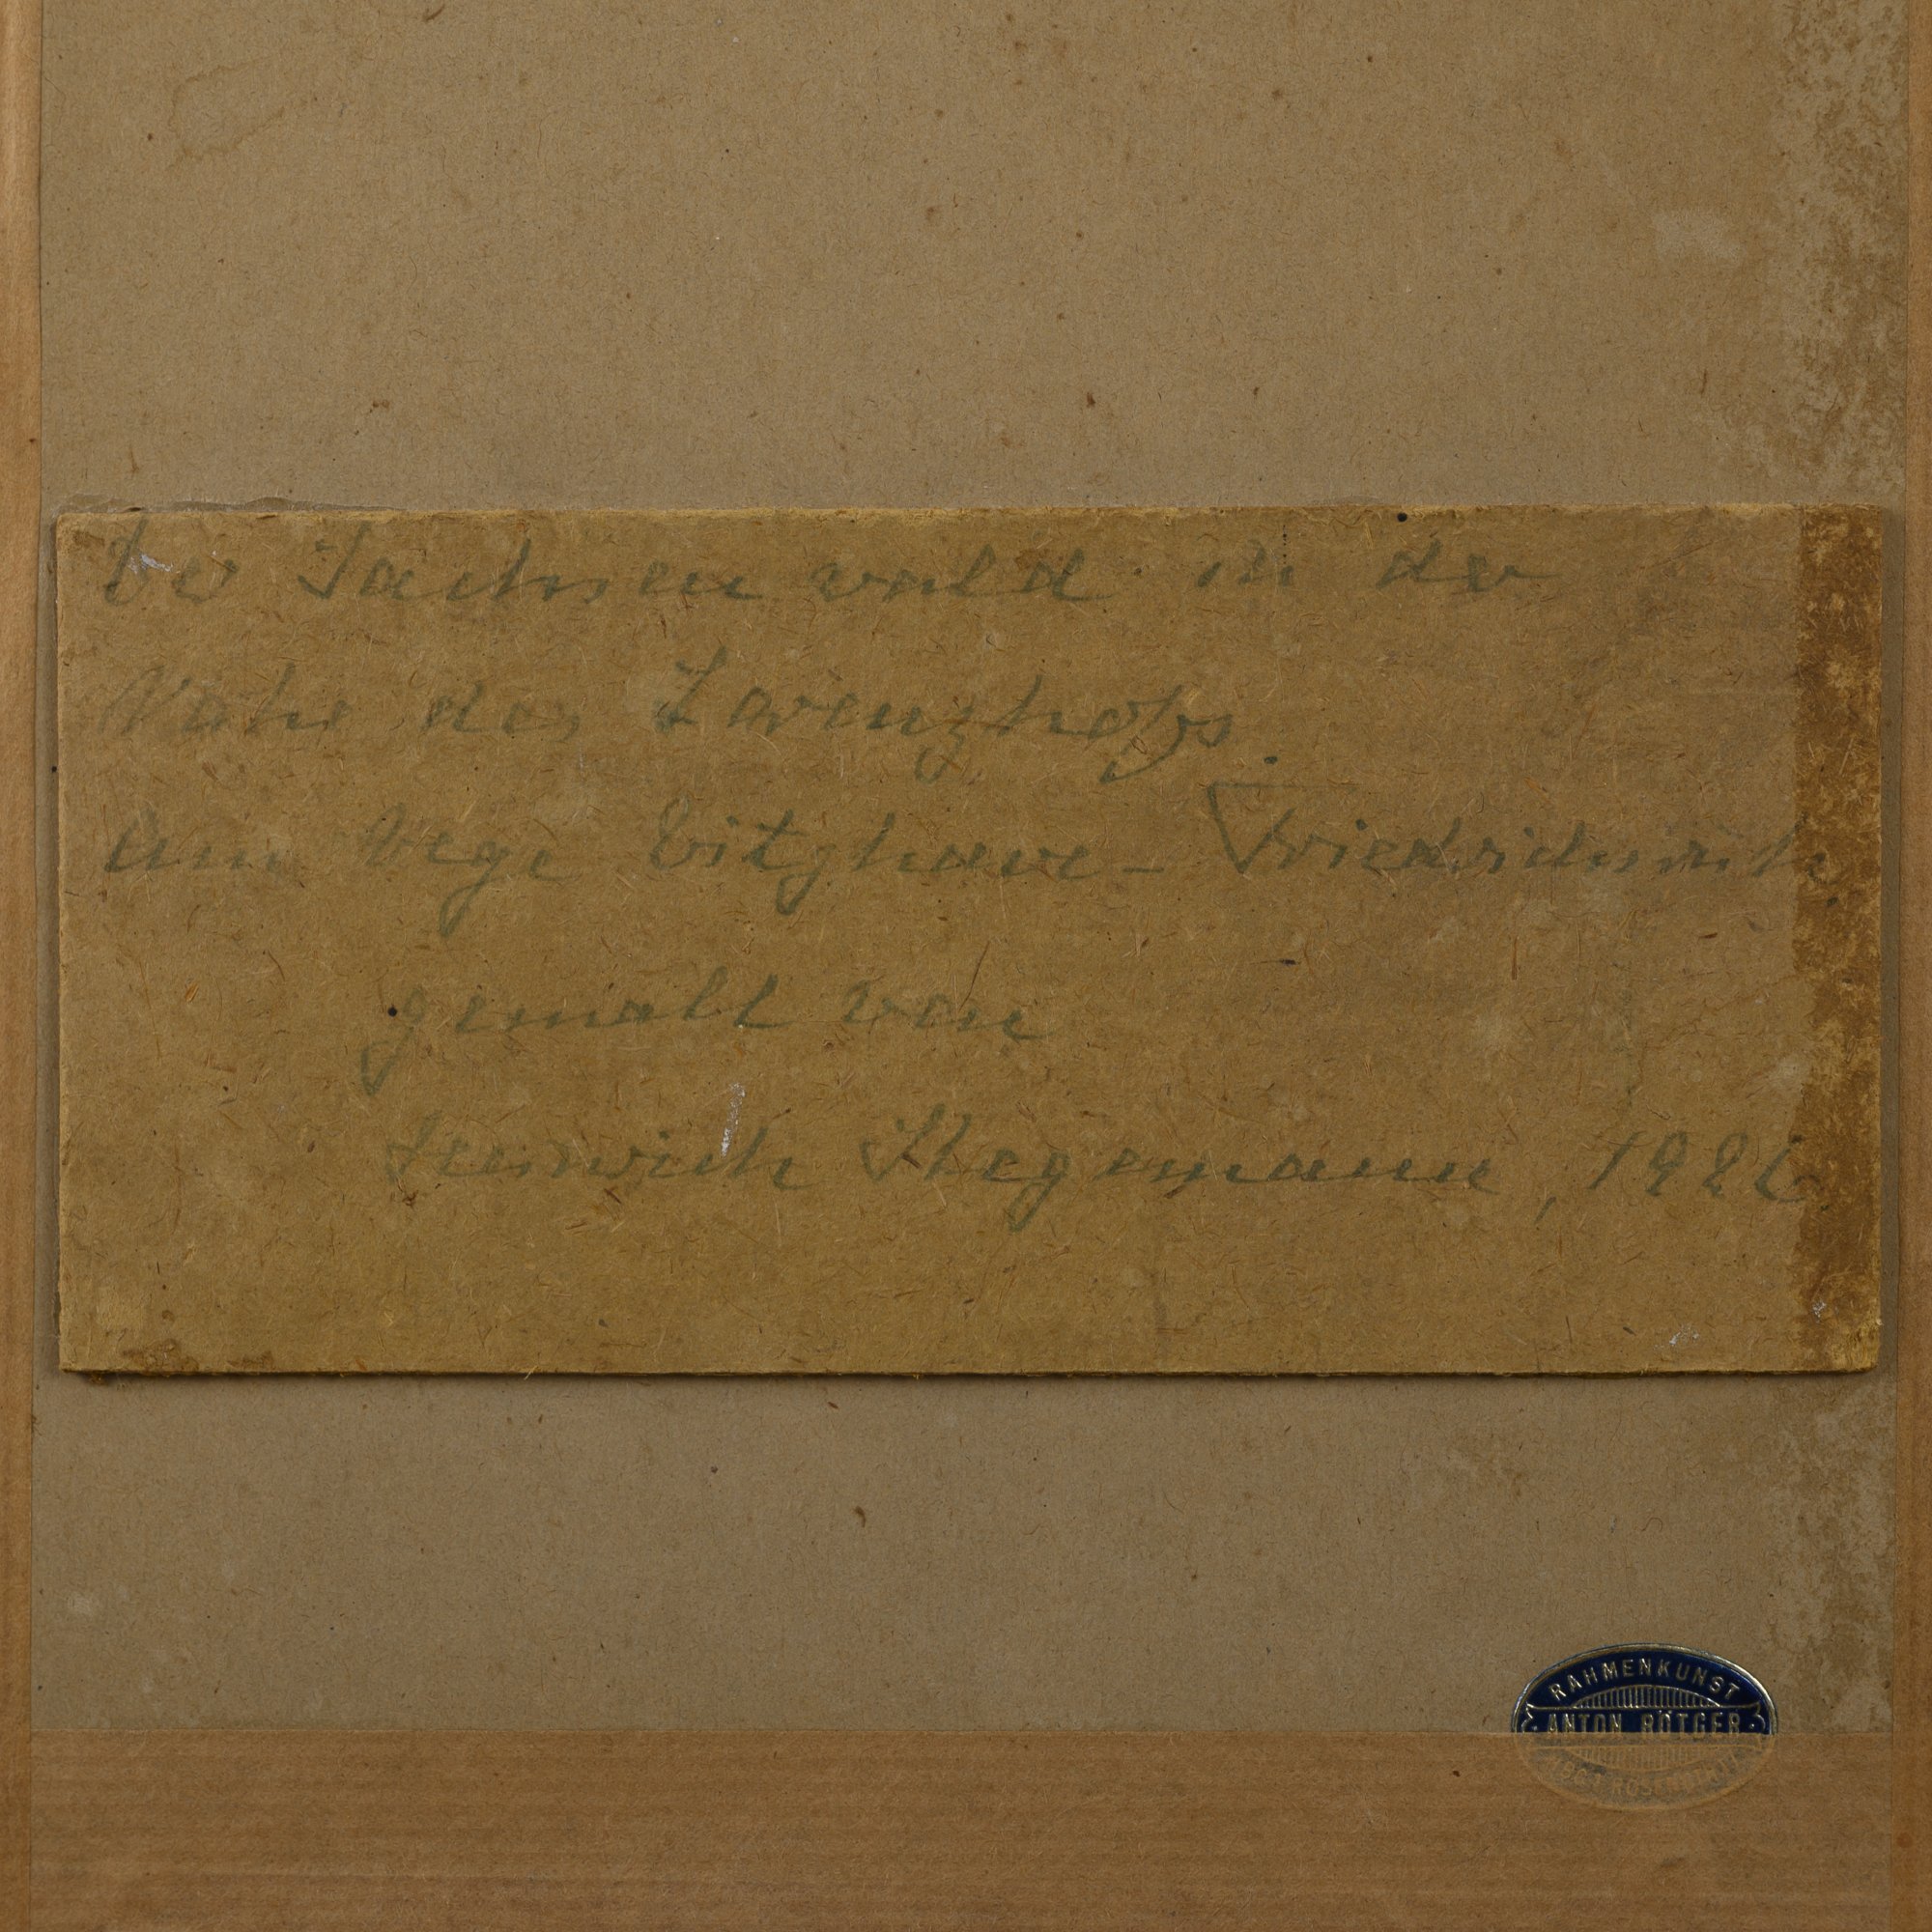 Der Sachsenwald in der
Nähe des Lorenzhofs.
Am Wege Witzhave - Friedrichsruh.
gemalt von
Heinrich Stegemann, 1926
RAHMENKUNST
ANTON RÖTGER